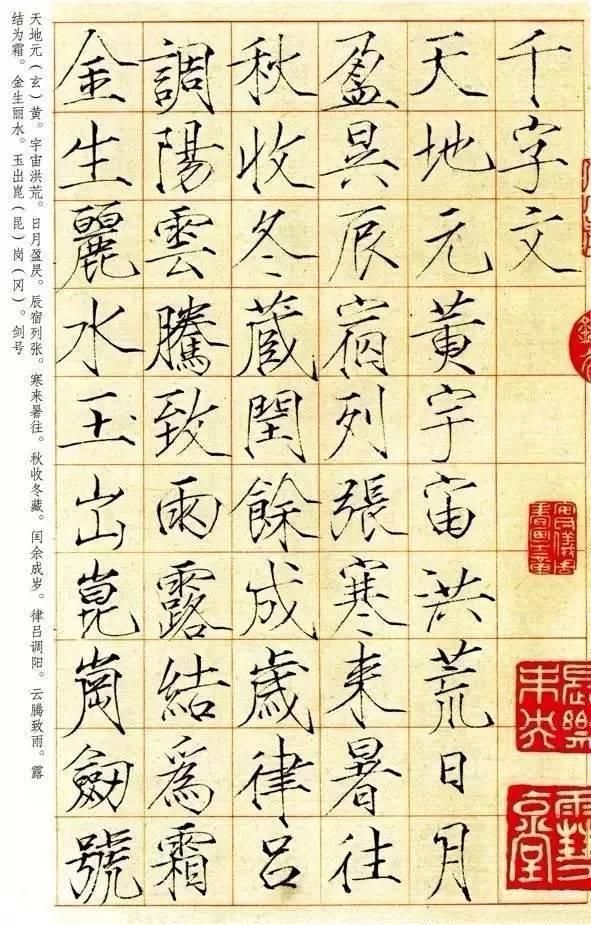 長樂
未央
千字文
天地元黄宇宙洪荒日月
盈昃辰宿列張寒来暑往
秋收冬蔵閏餘成歲律吕
調陽雲騰致雨露結爲霜
金生麗水玉出崑崗劒號
天地元（玄）黄。宇宙洪荒。日月盈昃。辰宿列张。寒来暑往。秋收冬藏。闰余成岁。律吕调阳。云腾致雨。露
结为霜。金生丽水。玉出崑（昆）岗（冈）。剑号